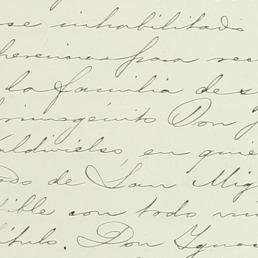 se inhabilitado
herencia para
la familia de s
rimogénito Don
aldivielso, en quie
ado de San Mig
tible con todo
ítulo. Don Ygnac